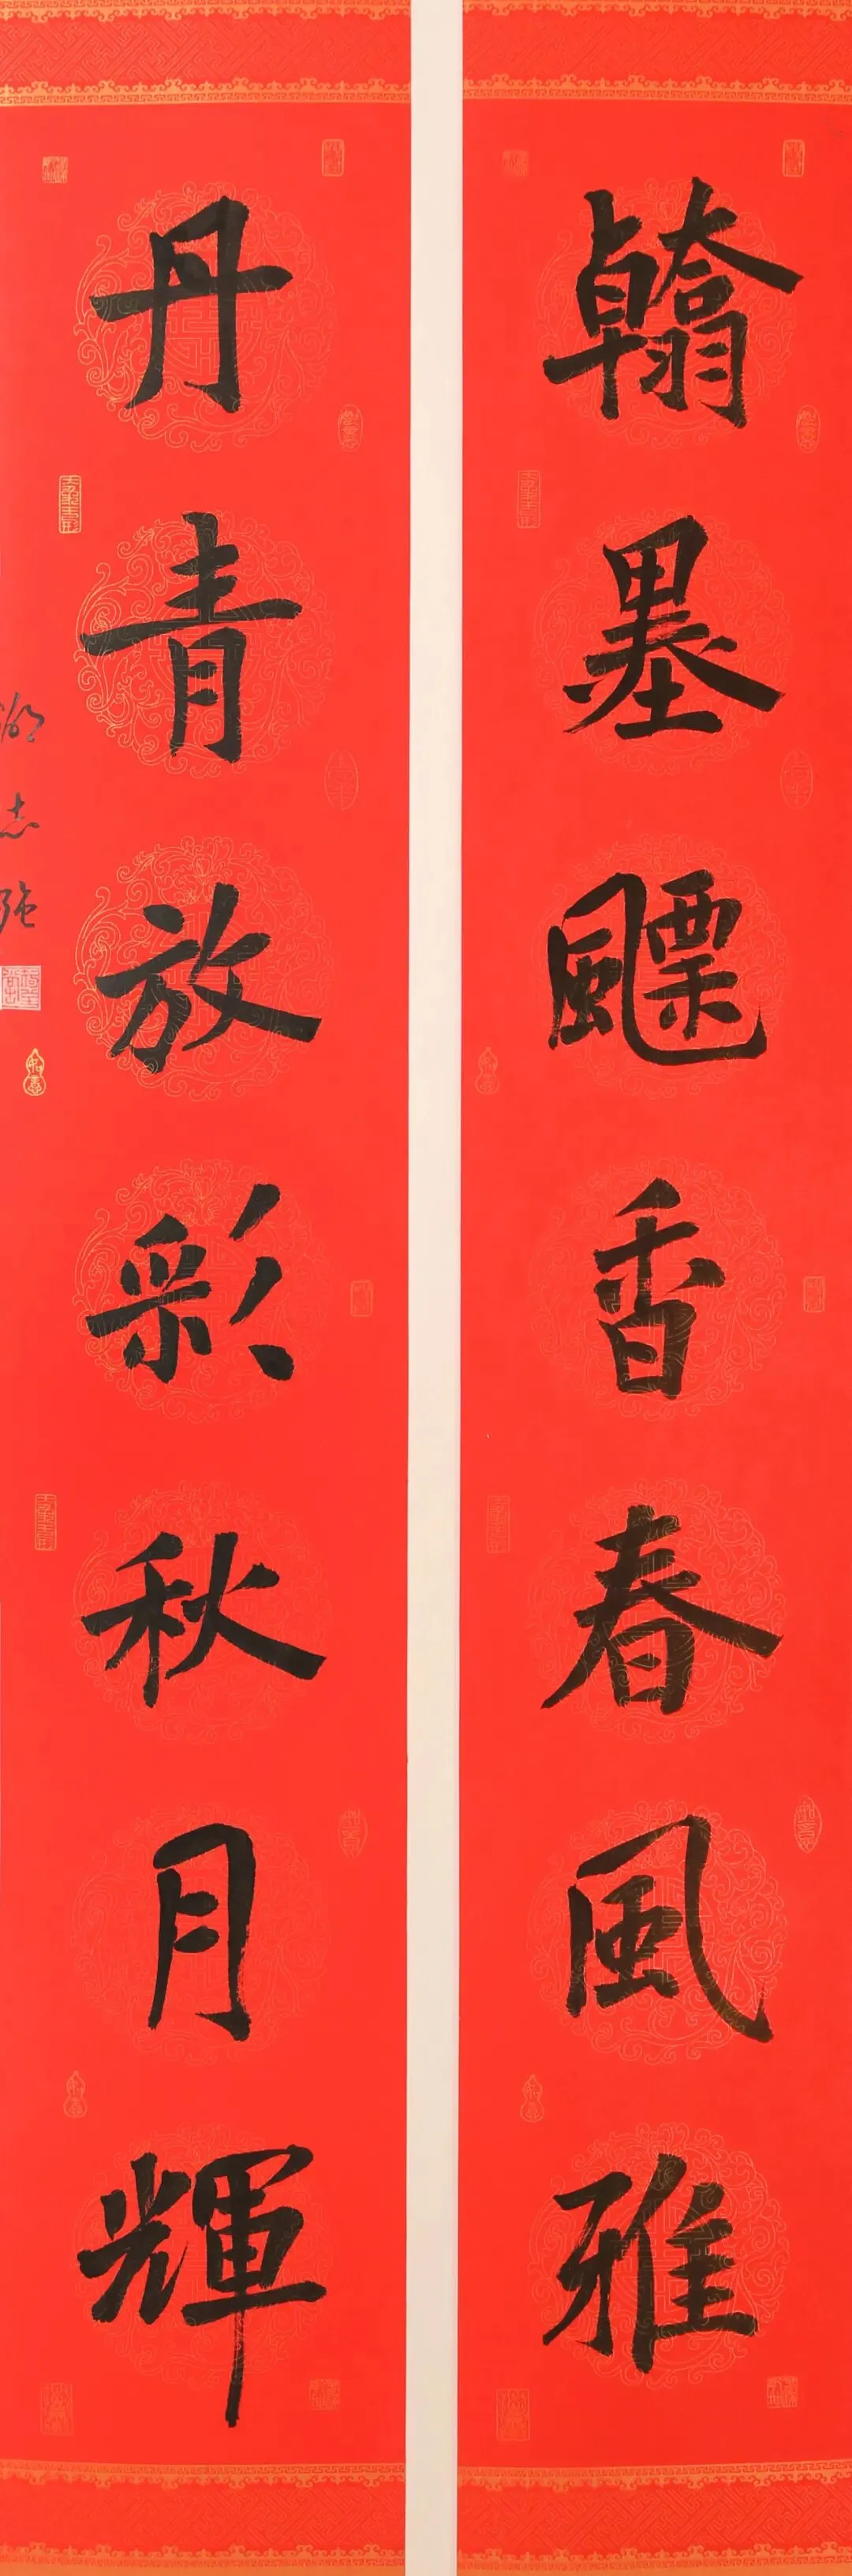 翰墨飃香春風雅
丹青放彩秋月輝